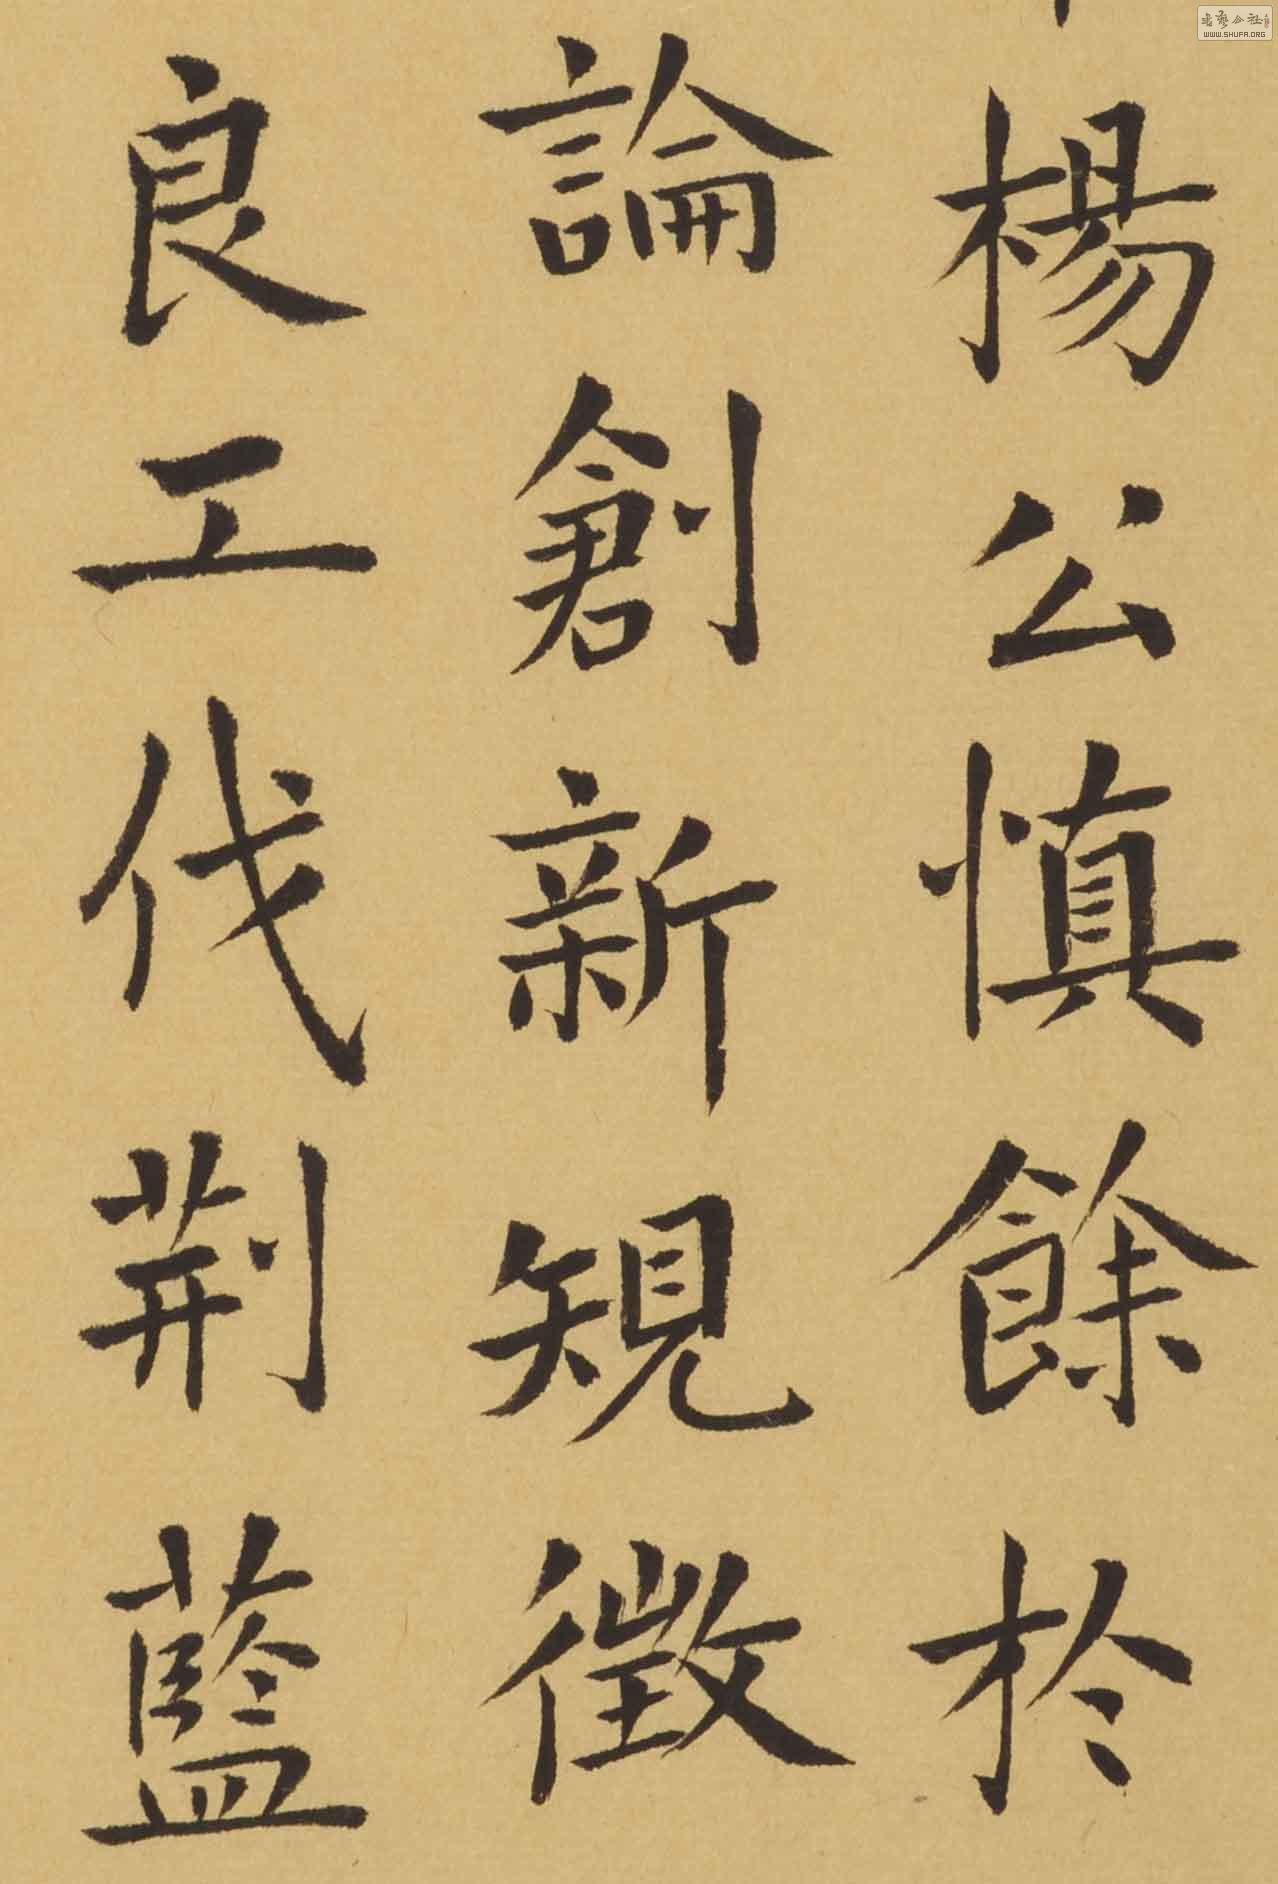 楊公慎餘於
論創新規徵
良工伐荆藍
书艺公社
WWW.SHUFA.ORG